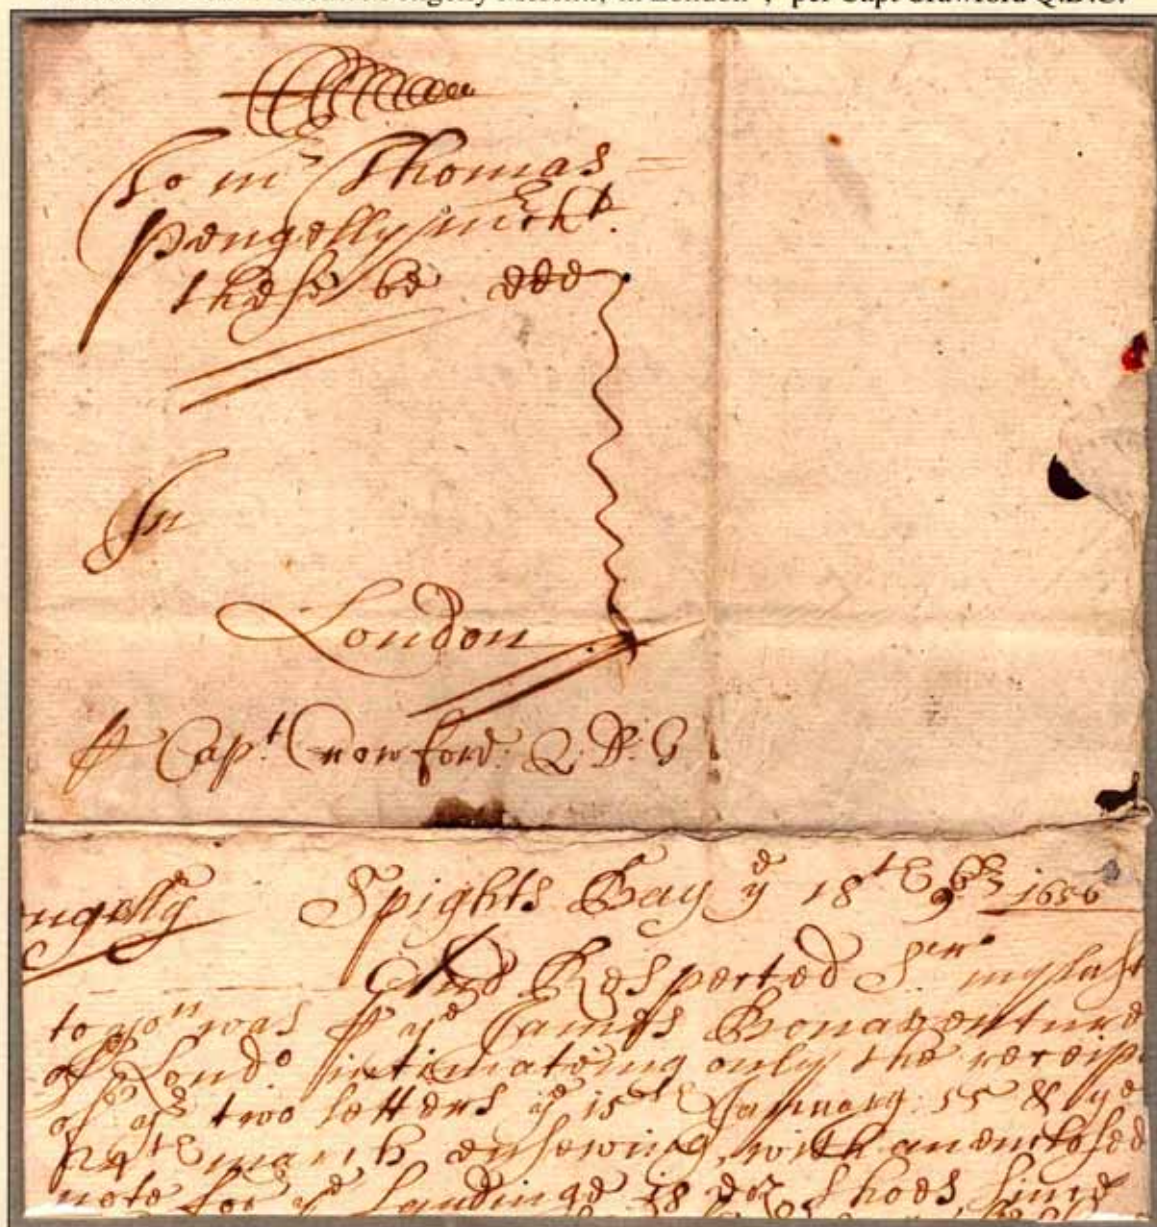 Pengelly Mercht, in London", "per Capt Crawford Q.D.C."
To mr Thomas
Pengelly mcht.
these be ddd
In
London
p Capt. Crowford: Q: D: G
ngelly Spights Bay ye 18th 9br 1656
And Respected Sr my last
to you was p ye James Bonaventure
of Londo intimateing only the receip
of yr two letters ye 15th January 55 & ye
24th march ensewing, with an enclosed
note for ye Landinge 18 doz shoes since